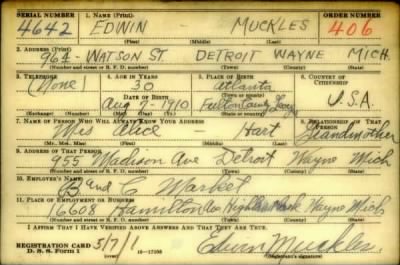 SERIAL NUMBER 1. NAME (Print) ORDER NUMBER
4642 EDWIN - MUCKLES 406
(First) (Middle) (Last)
2. ADDRESS (Print)
964 - WATSON ST. DETROIT WAYNE MICH
(Number and street or R. F. D. number) (Town) (County) (State)
3. TELEPHONE 4. AGE IN YEARS 5. PLACE OF BIRTH 6. COUNTRY OF CITIZENSHIP
(None) 30 Atlanta
DATE OF BIRTH (Town or county)
Aug 7 - 1910 Fulton County Georgia U.S.A.
(Exchange) (Number) (Mo.) (Day) (Yr.) (State or country)
7. NAME OF PERSON WHO WILL ALWAYS KNOW YOUR ADDRESS 8. RELATIONSHIP OF THAT PERSON
Mrs Alice - Hart Grandmother
(Mr., Mrs., Miss) (First) (Middle) (Last)
9. ADDRESS OF THAT PERSON
955 Madison Ave Detroit Wayne Mich
(Number and street or R. F. D. number) (Town) (County) (State)
10. EMPLOYER'S NAME
B and C Market
11. PLACE OF EMPLOYMENT OR BUSINESS
16608 Hamilton Ave Highland Park Wayne Mich
(Number and street or R. F. D. number) (Town) (County) (State)
I AFFIRM THAT I HAVE VERIFIED ABOVE ANSWERS AND THAT THEY ARE TRUE.
REGISTRATION CARD
D. S. S. Form 1 16-17105 Edwin Muckles.